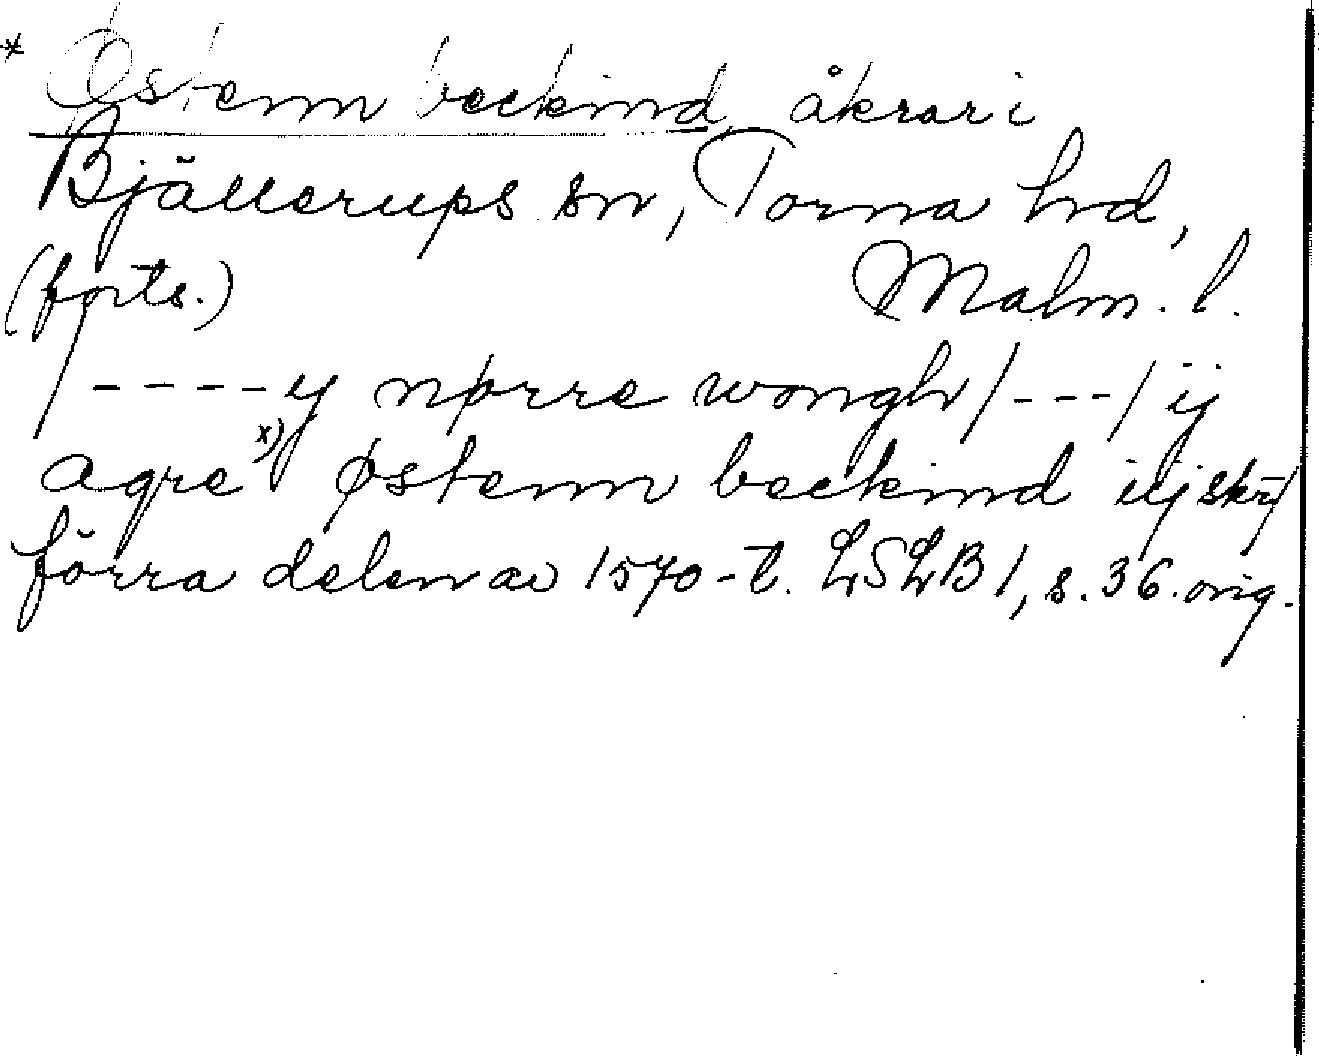 * Østenn beckind, åkrar i
Bjällerups sn, Torna hrd,
(forts.) Malm. l.
/ ---- y nørre wongh/---/ ij
agre x) østenn beckind iijskr/
förra delen av 1570-t. LSLB 1, s. 36. orig.